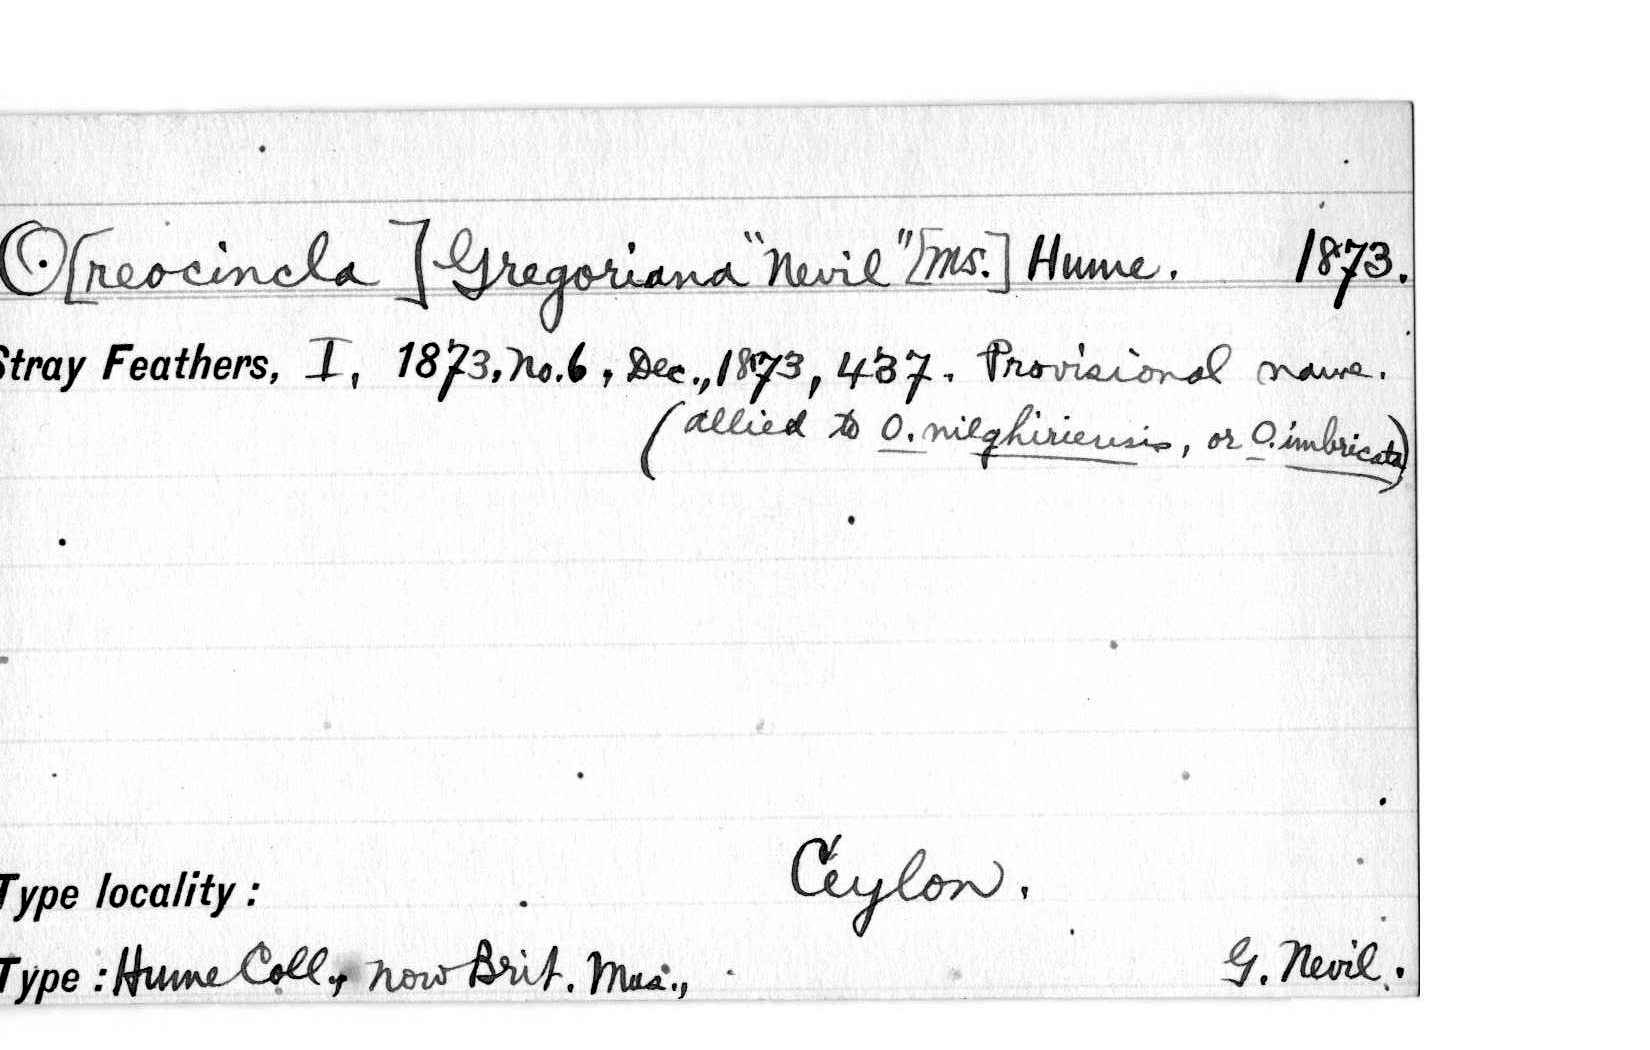 O[reocincla ] Gregoriana "Nevil" [MS.] Hume. 1873.
Stray Feathers, I, 1873, No. 6, Dec., 1873, 437. Provisional name.
(allied to O. nilghiriensis, or O. imbricata)
Type locality: Ceylon.
Type: Hume Coll., now Brit. Mus., G. Nevil.